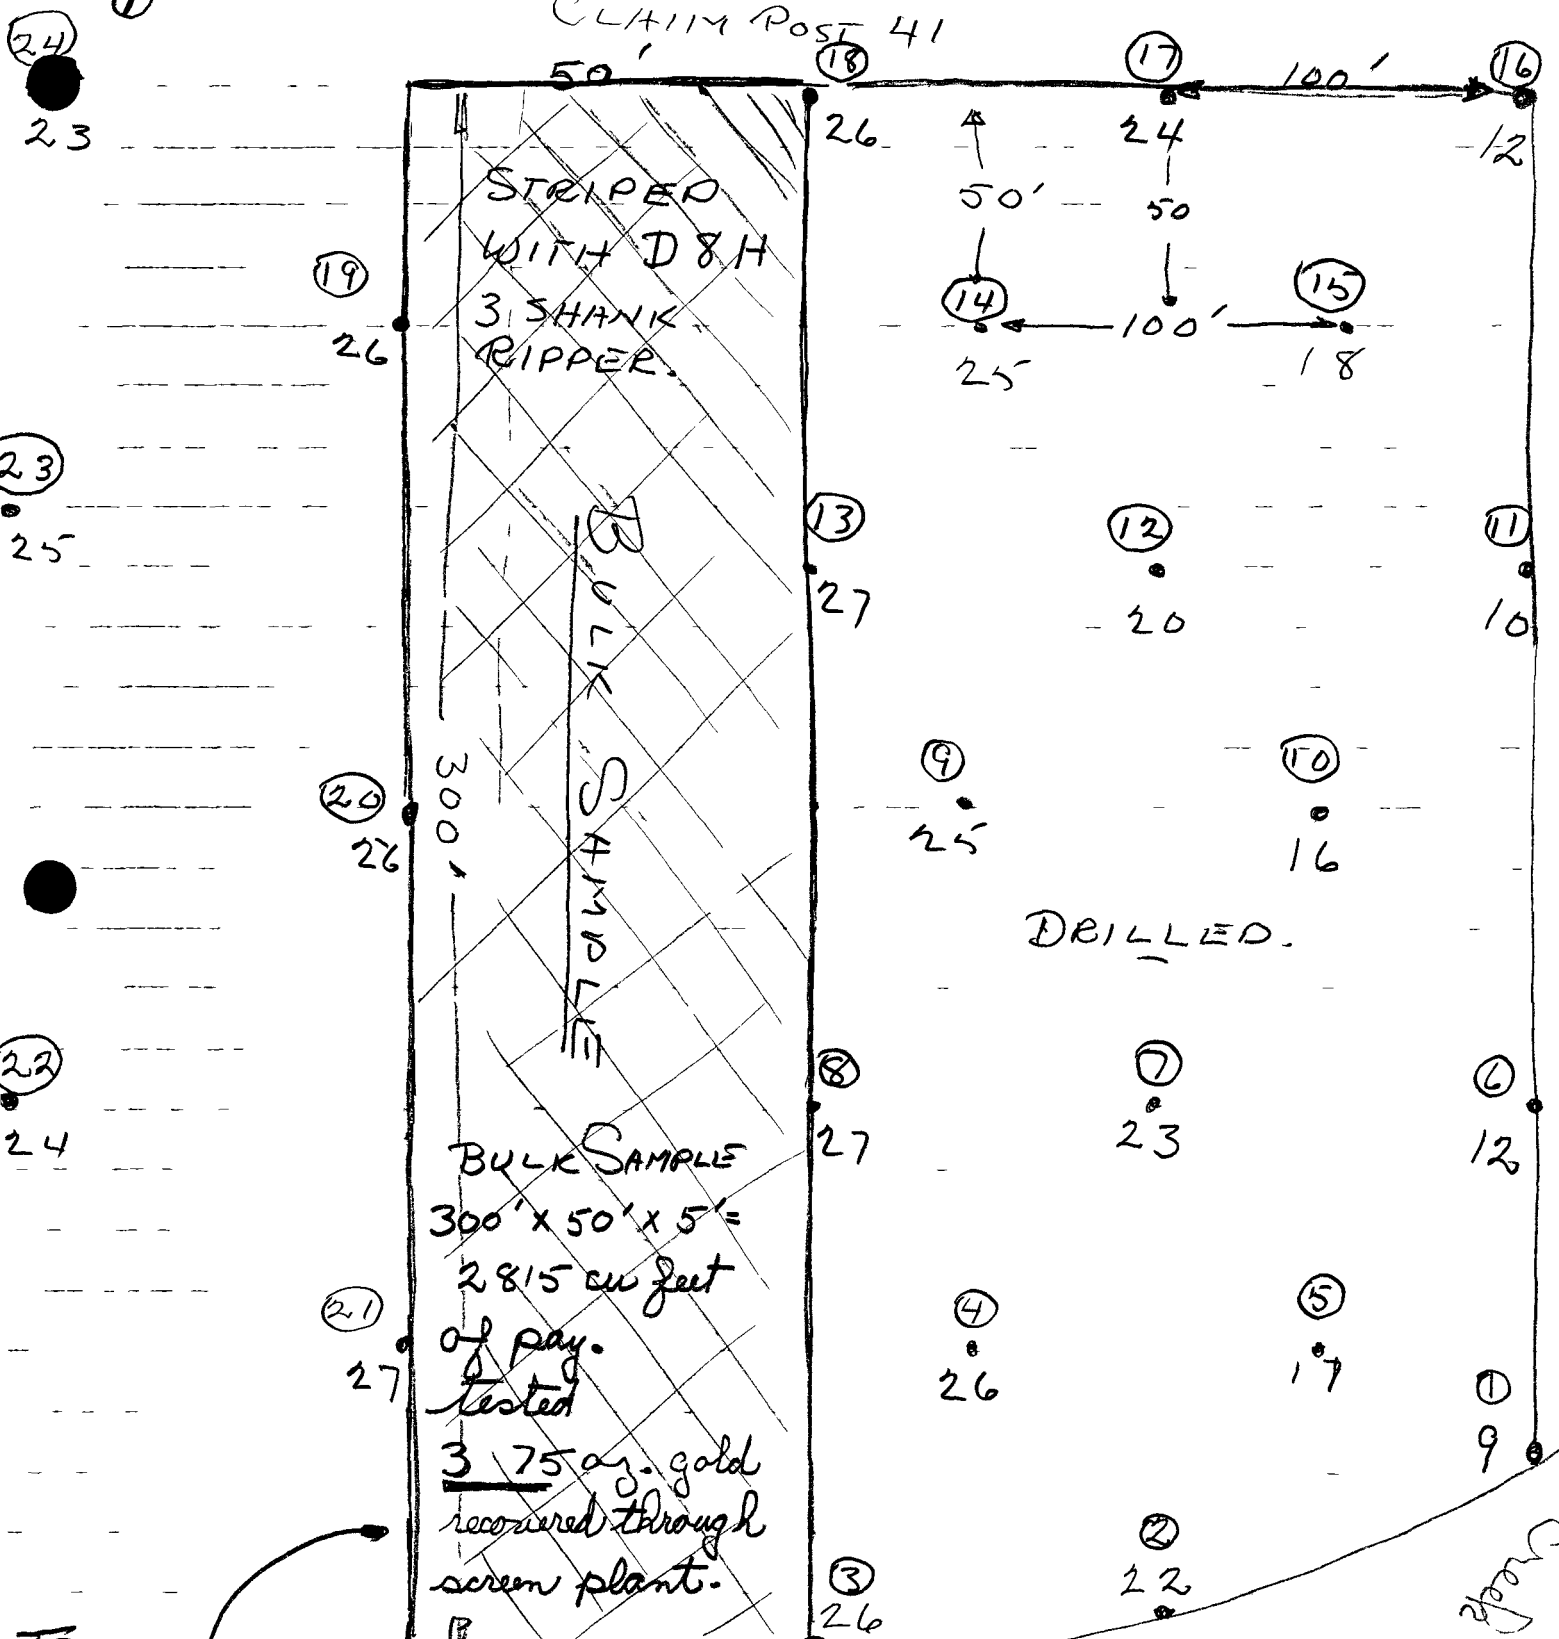 CLAIM POST 41
24
23
50'
18
26
17
24
100'
16
12
50'
50
STRIPED
WITH D8H
3 SHANK
RIPPER.
19
26
14
25
100'
15
18
23
25
13
27
12
20
11
10
BULK SAMPLE
300'
20
26
9
25
10
16
DRILLED.
22
24
8
27
7
23
6
12
BULK SAMPLE
300' x 50' x 5' =
2815 cu feet
of pay.
tested
3 75 oz. gold
recovered through
screen plant.
21
27
4
26
5
17
1
9
2
22
3
26
Creek